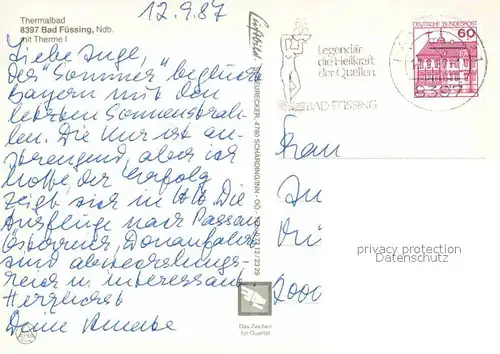 12.9.87
Thermalbad
8397 Bad Füssing, Ndb.
mit Therme I
Liebe Inge,
der "Sommer" beglückt
Bayern mit den
letzten Sonnenstrah-
len. Die Kur ist an-
strengend, aber ich
hoffe, der Erfolg
zeigt sich in Die
Ausflüge nach Passau
Donaufahrt
sind abwechslungs-
reich u. interessant
Herzlichst
Deine
Legendär
die Heilkraft
der Quellen.
BAD FÜSSING
DEUTSCHE BUNDESPOST
60
8397
4780 SCHÄRDING/INN - OÖ
Frau
privacy protection
Datenschutz
Das Zeichen
für Qualität